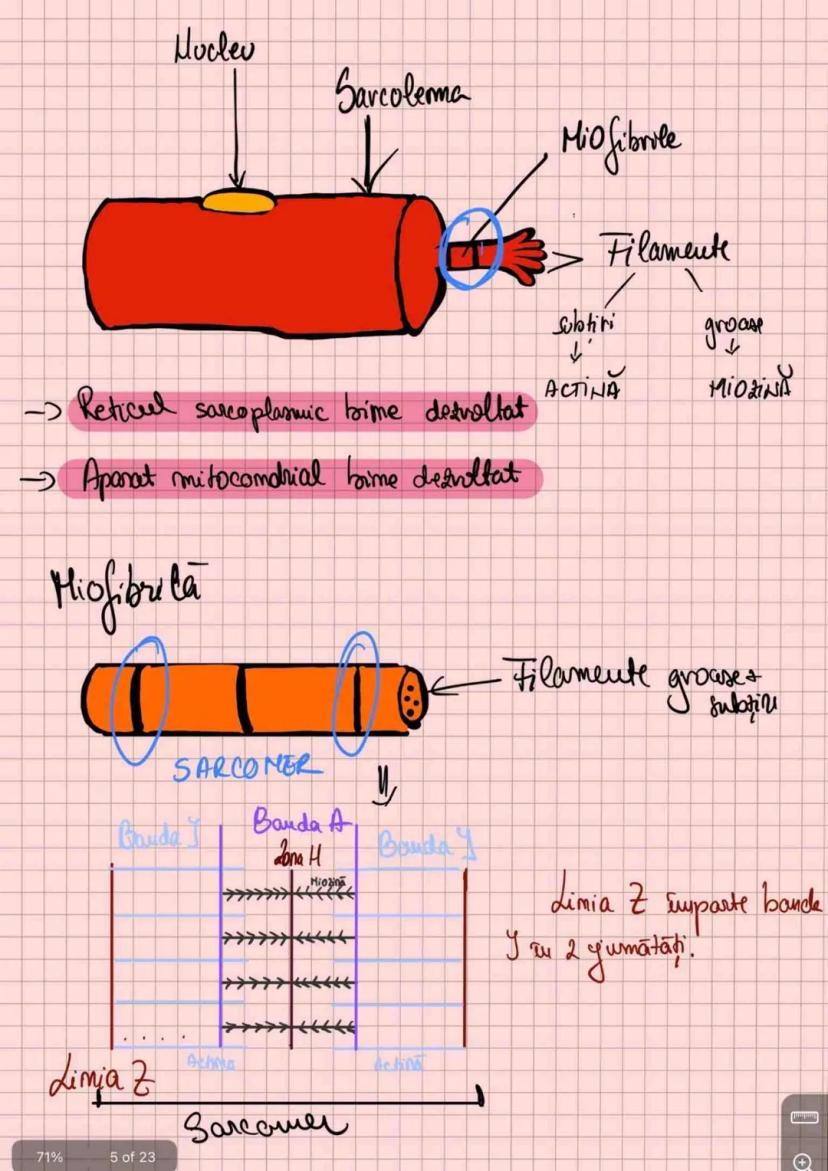 Nucleu
Sarcolema
Miofibrile
Filamente
subțiri
groase
↓
↓
ACTINĂ
MIOZINĂ
-> Reticul sarcoplasmic bine dezvoltat
-> Aparat mitocondrial bine dezvoltat
Miofibrilă
Filamente groase+
subțiri
SARCOMER
Banda I
Banda A
Zona H
Banda I
Miozină
Linia Z împarte banda
I în 2 jumătăți.
. . . .
Actina
Actină
Linia Z
Sarcomer
71%
5 of 23